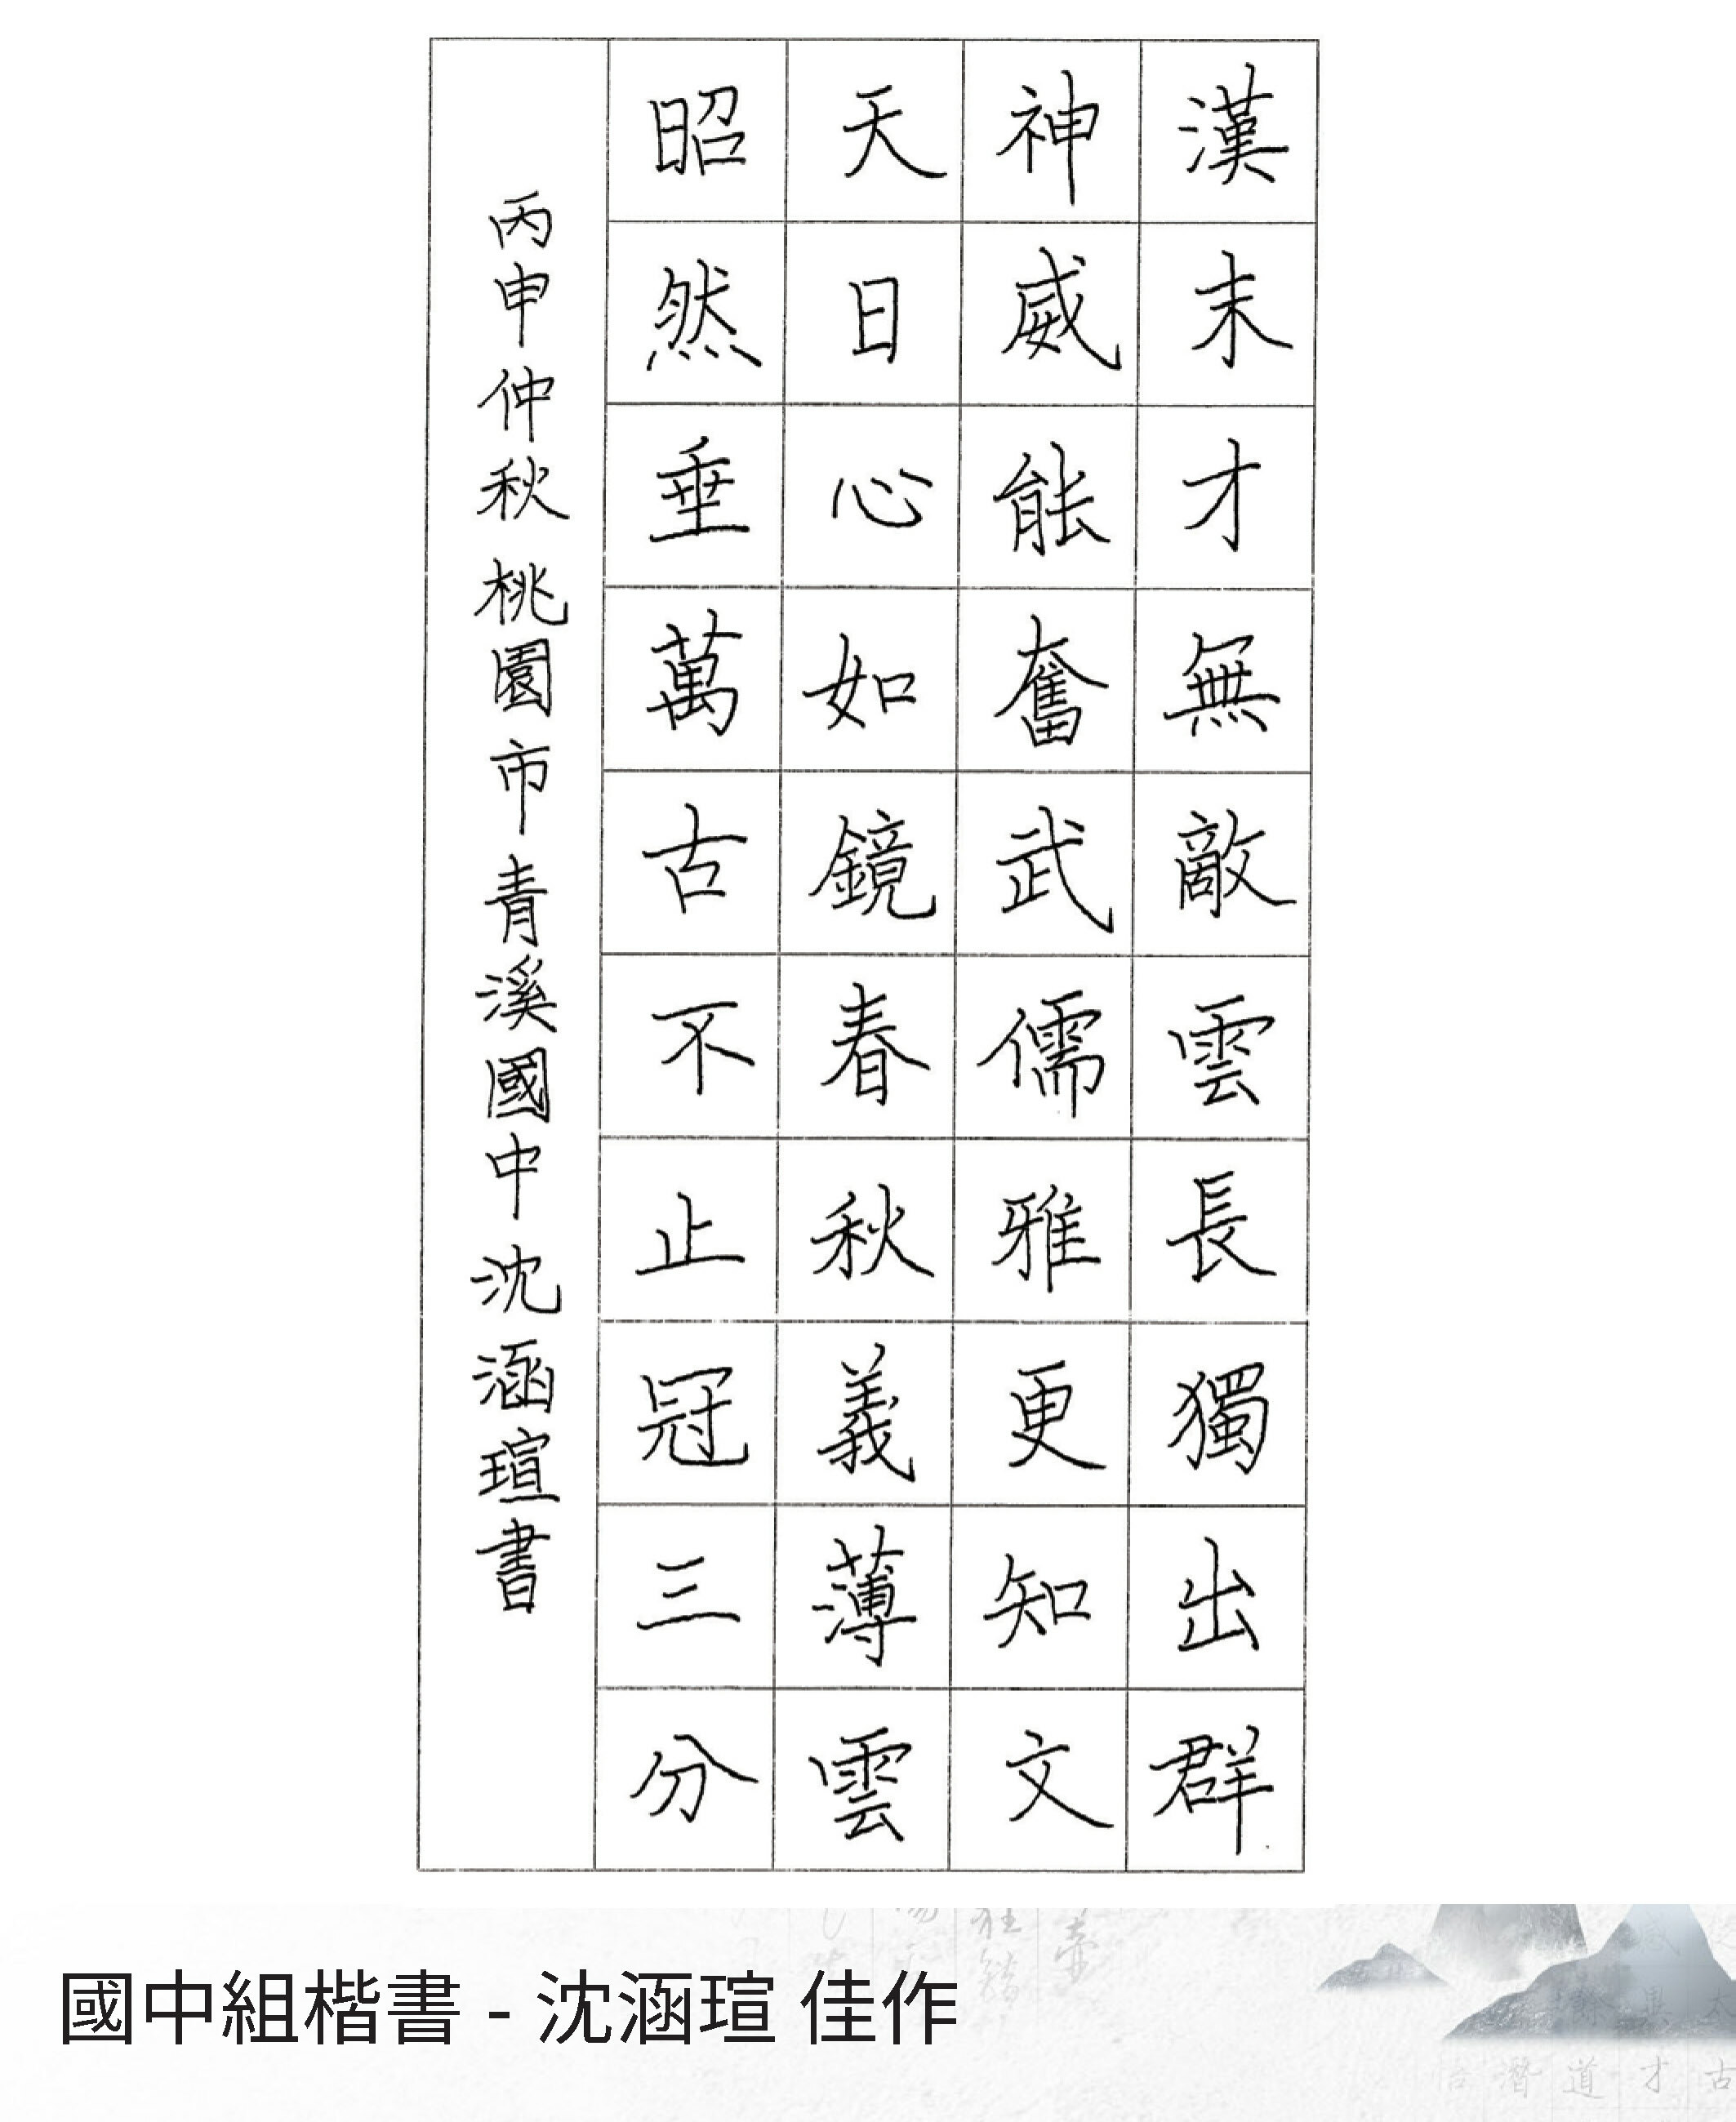 漢末才無敵雲長獨出群
神威能奮武儒雅更知文
天日心如鏡春秋義薄雲
昭然垂萬古不止冠三分
丙申仲秋桃園市青溪國中沈涵瑄書
國中組楷書 - 沈涵瑄 佳作